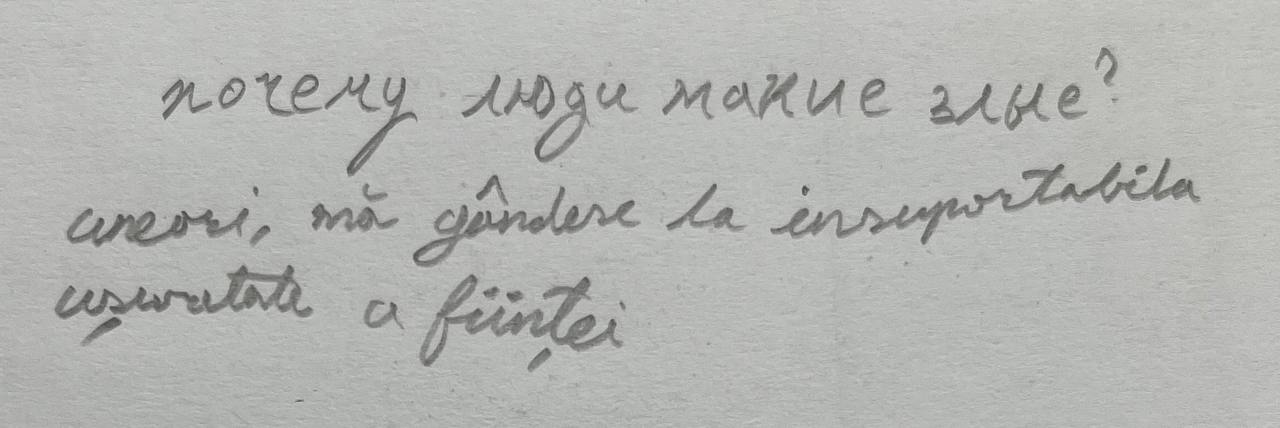 почему люди такие злые?
uneori, mă gândesc la insuportabila
ușuratate a ființei